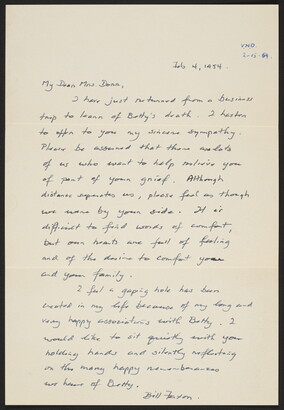 Feb 4, 1954
My Dear Mrs. Dunn,
I have just returned from a business
trip to learn of Betty's death. I hasten
to offer to you my sincere sympathy.
Please be assured that there are lots
of us who want to help relieve you
of part of your grief. Although
distance separates us, please feel as though
we were by your side. It is
difficult to find words of comfort,
but our hearts are full of feeling
and of the desire to comfort you
and your family.
I feel a gaping hole has been
created in my life because of my long and
very happy associations with Betty. I
would like to sit quietly with your
holding hands and silently reflecting
on the many happy remembrances
we have of Betty.
Bill